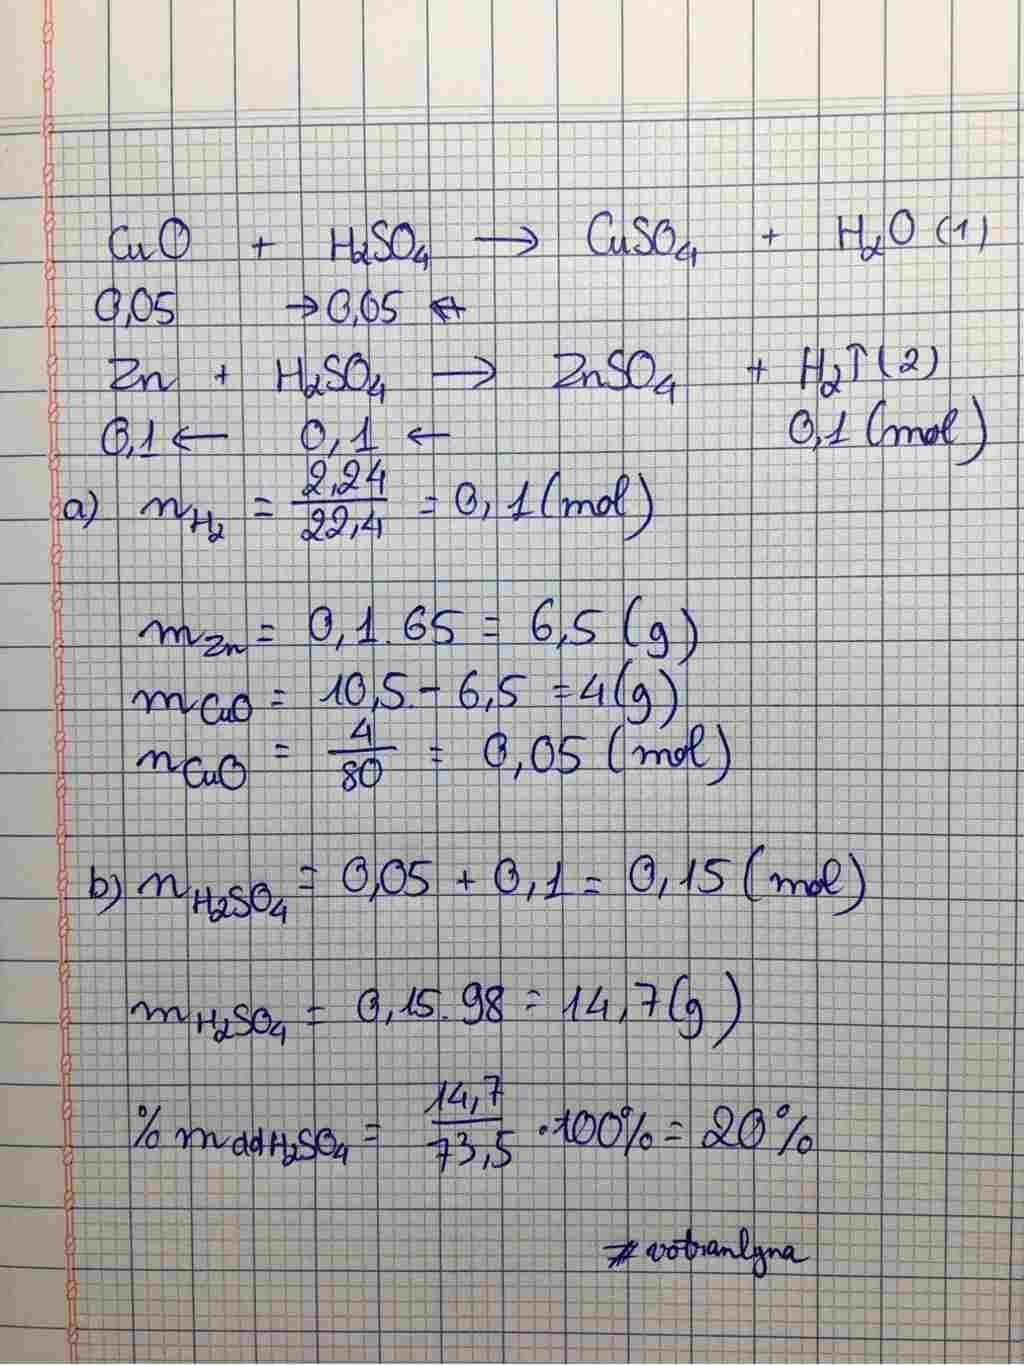 CuO + H2SO4 → CuSO4 + H2O (1)
0,05 → 0,05 ←
Zn + H2SO4 → ZnSO4 + H2↑ (2)
0,1 ← 0,1 ← 0,1 (mol)
a) nH2 = 2,24/22,4 = 0,1 (mol)
mZn = 0,1.65 = 6,5 (g)
mCuO = 10,5 - 6,5 = 4 (g)
nCuO = 4/80 = 0,05 (mol)
b) nH2SO4 = 0,05 + 0,1 = 0,15 (mol)
mH2SO4 = 0,15.98 = 14,7 (g)
% mddH2SO4 = 14,7/73,5 .100% = 20%
#votranlyna